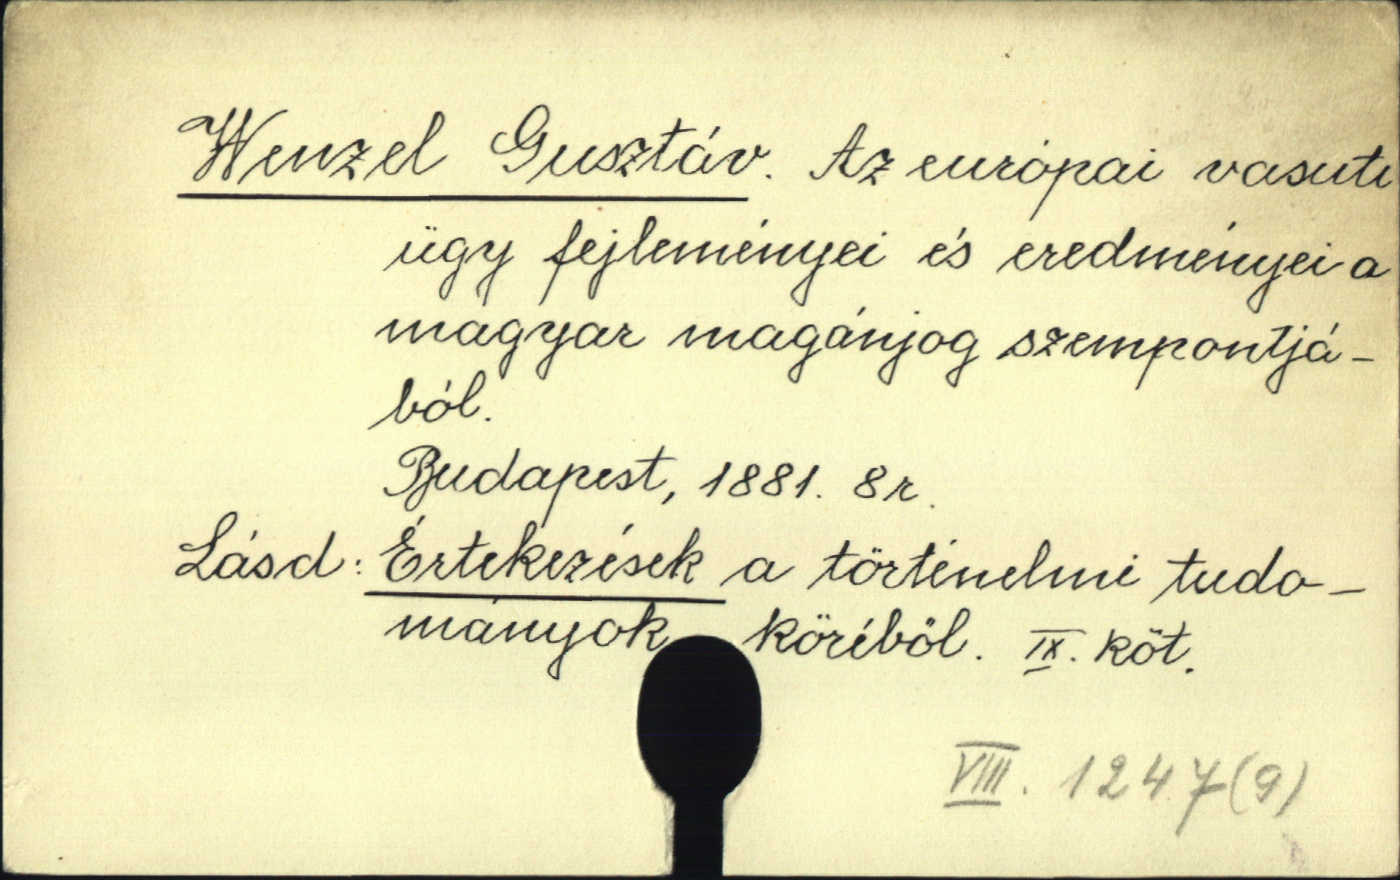 Wenzel Gusztáv. Az európai vasuti
ügy fejleményei és eredményei a
magyar magánjog szempontjá-
ból.
Budapest, 1881. 8r.
Lásd: Értekezések a történelmi tudo-
mányok köréből. IX. köt.
VIII. 1247(9)